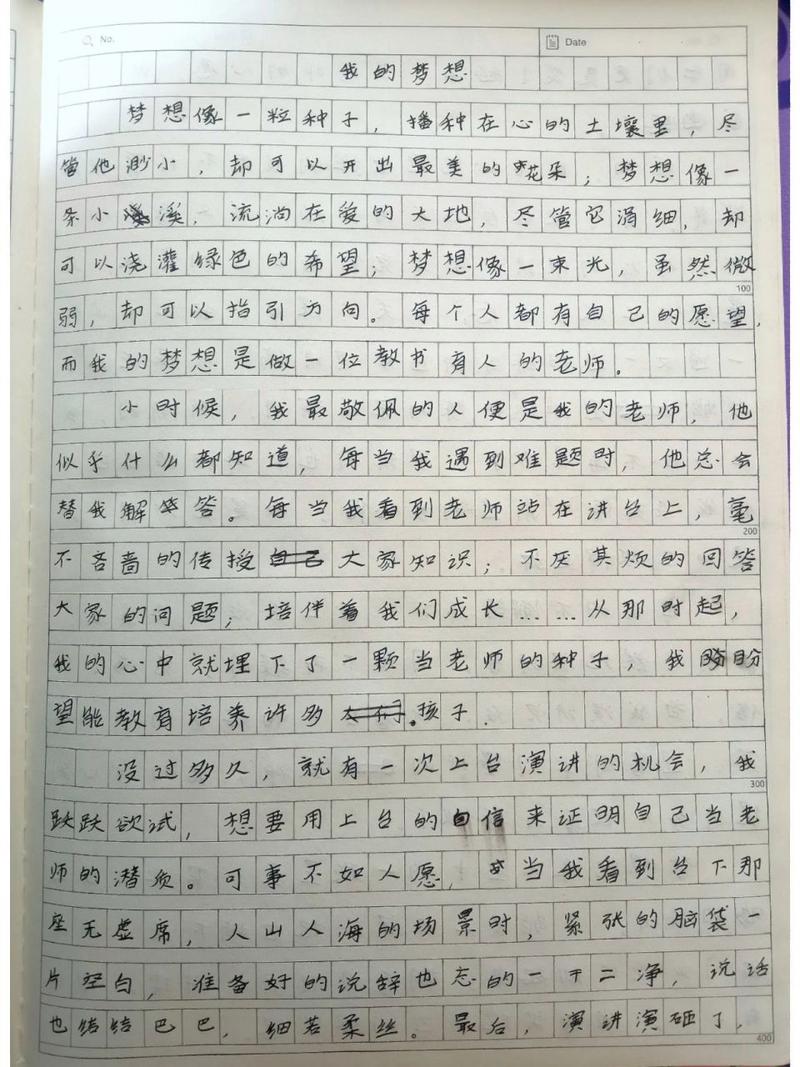 No.
Date
我的梦想
梦想像一粒种子，播种在心的土壤里，尽
管他渺小，却可以开出最美的花朵；梦想像一
条小溪，流淌在爱的大地，尽管它涓细，却
可以浇灌绿色的希望；梦想像一束光，虽然微
100
弱，却可以指引方向。每个人都有自己的愿望，
而我的梦想是做一位教书育人的老师。
小时候，我最敬佩的人便是我的老师，他
似乎什么都知道，每当我遇到难题时，他总会
替我解答。每当我看到老师站在讲台上，毫
200
不吝啬的传授大家知识；不厌其烦的回答
大家的问题；培伴着我们成长……从那时起，
我的心中就埋下了一颗当老师的种子，我盼盼
望能教育培养许多孩子.
没过多久，就有一次上台演讲的机会，我
300
跃跃欲试，想要用上台的自信来证明自己当老
师的潜质。可事不如人愿，当我看到台下那
座无虚席，人山人海的场景时，紧张的脑袋一
片空白，准备好的说辞也忘的一干二净，说话
也结结巴巴，细若柔丝。最后，演讲演砸了，
400